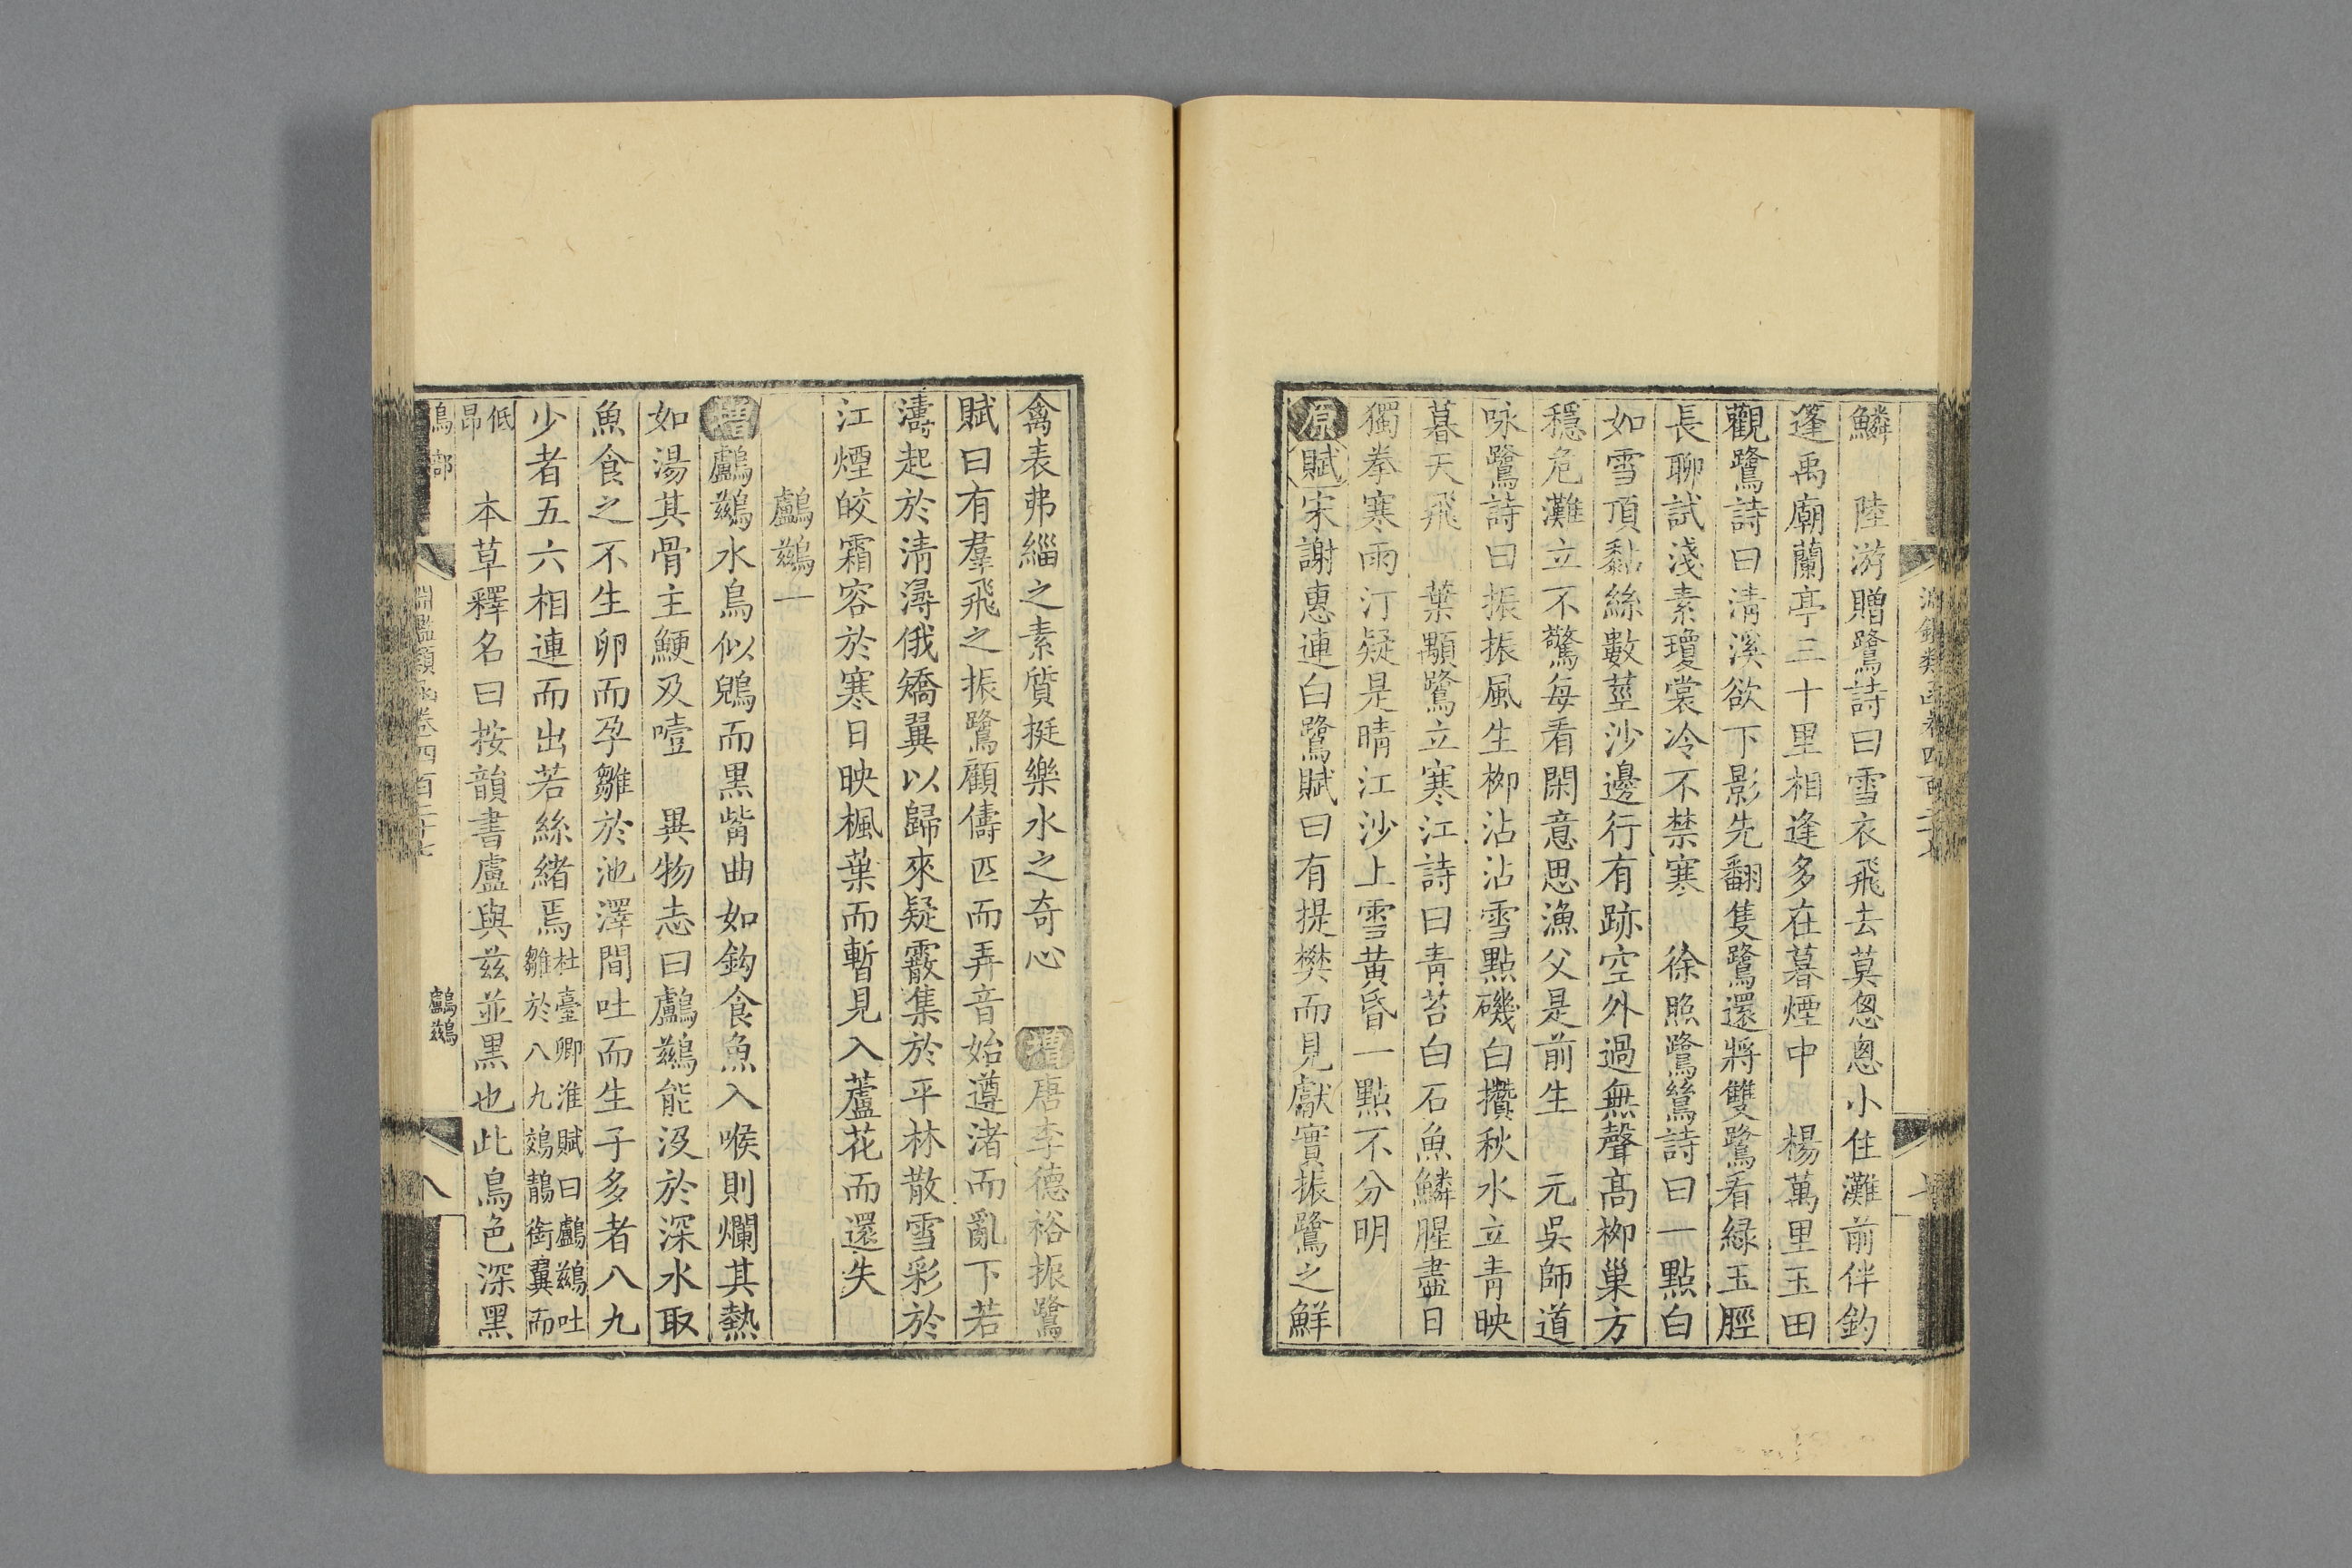 鱗　陸游贈鷺詩曰雪衣飛去莫怱怱小住灘前伴釣
逢禹廟蘭亭三十里相逢多在暮煙中　楊萬里玉田
觀鷺詩曰清溪欲下影先翻隻鷺還將雙鷺看緑玉脛
長聊試淺素瓊裳冷不禁寒　徐照鷺鷥詩曰一點白
如雪頂黏絲數莖沙邊行有跡空外過無聲髙栁巢方
穩危灘立不驚每看閑意思漁父是前生　元吳師道
咏鷺詩曰振振風生栁沾沾雪點磯白攢秋水立青映
暮天飛　葉顒鷺立寒江詩曰青苔白石魚鱗腥盡日
獨拳寒雨汀疑是晴江沙上雪黃昏一點不分明
原賦宋謝惠連白鷺賦曰有提樊而見獻實振鷺之鮮
禽表弗緇之素質挺樂水之奇心　增唐李德裕振鷺
賦曰有羣飛之振鷺顧儔匹而弄音始遵渚而亂下若
濤起於清潯俄矯翼以歸來疑霰集於平林散雪彩於
江煙皎霜容於寒日映楓葉而暫見入蘆花而還失
鸕鷀一
增鸕鷀水鳥似鶂而黑觜曲如鈎食魚入喉則爛其熱
如湯其骨主鯁及噎　異物志曰鸕鷀能沒於深水取
魚食之不生卵而孕雛於池澤間吐而生子多者八九
少者五六相連而出若絲緒焉杜臺卿淮賦曰鸕鷀吐
雛於八九鵁鶄銜翼而
低
昻
本草釋名曰按韻書盧與兹並黒也此鳥色深黑
鳥部
淵鑑類函卷四百二十七
鸕鷀
八